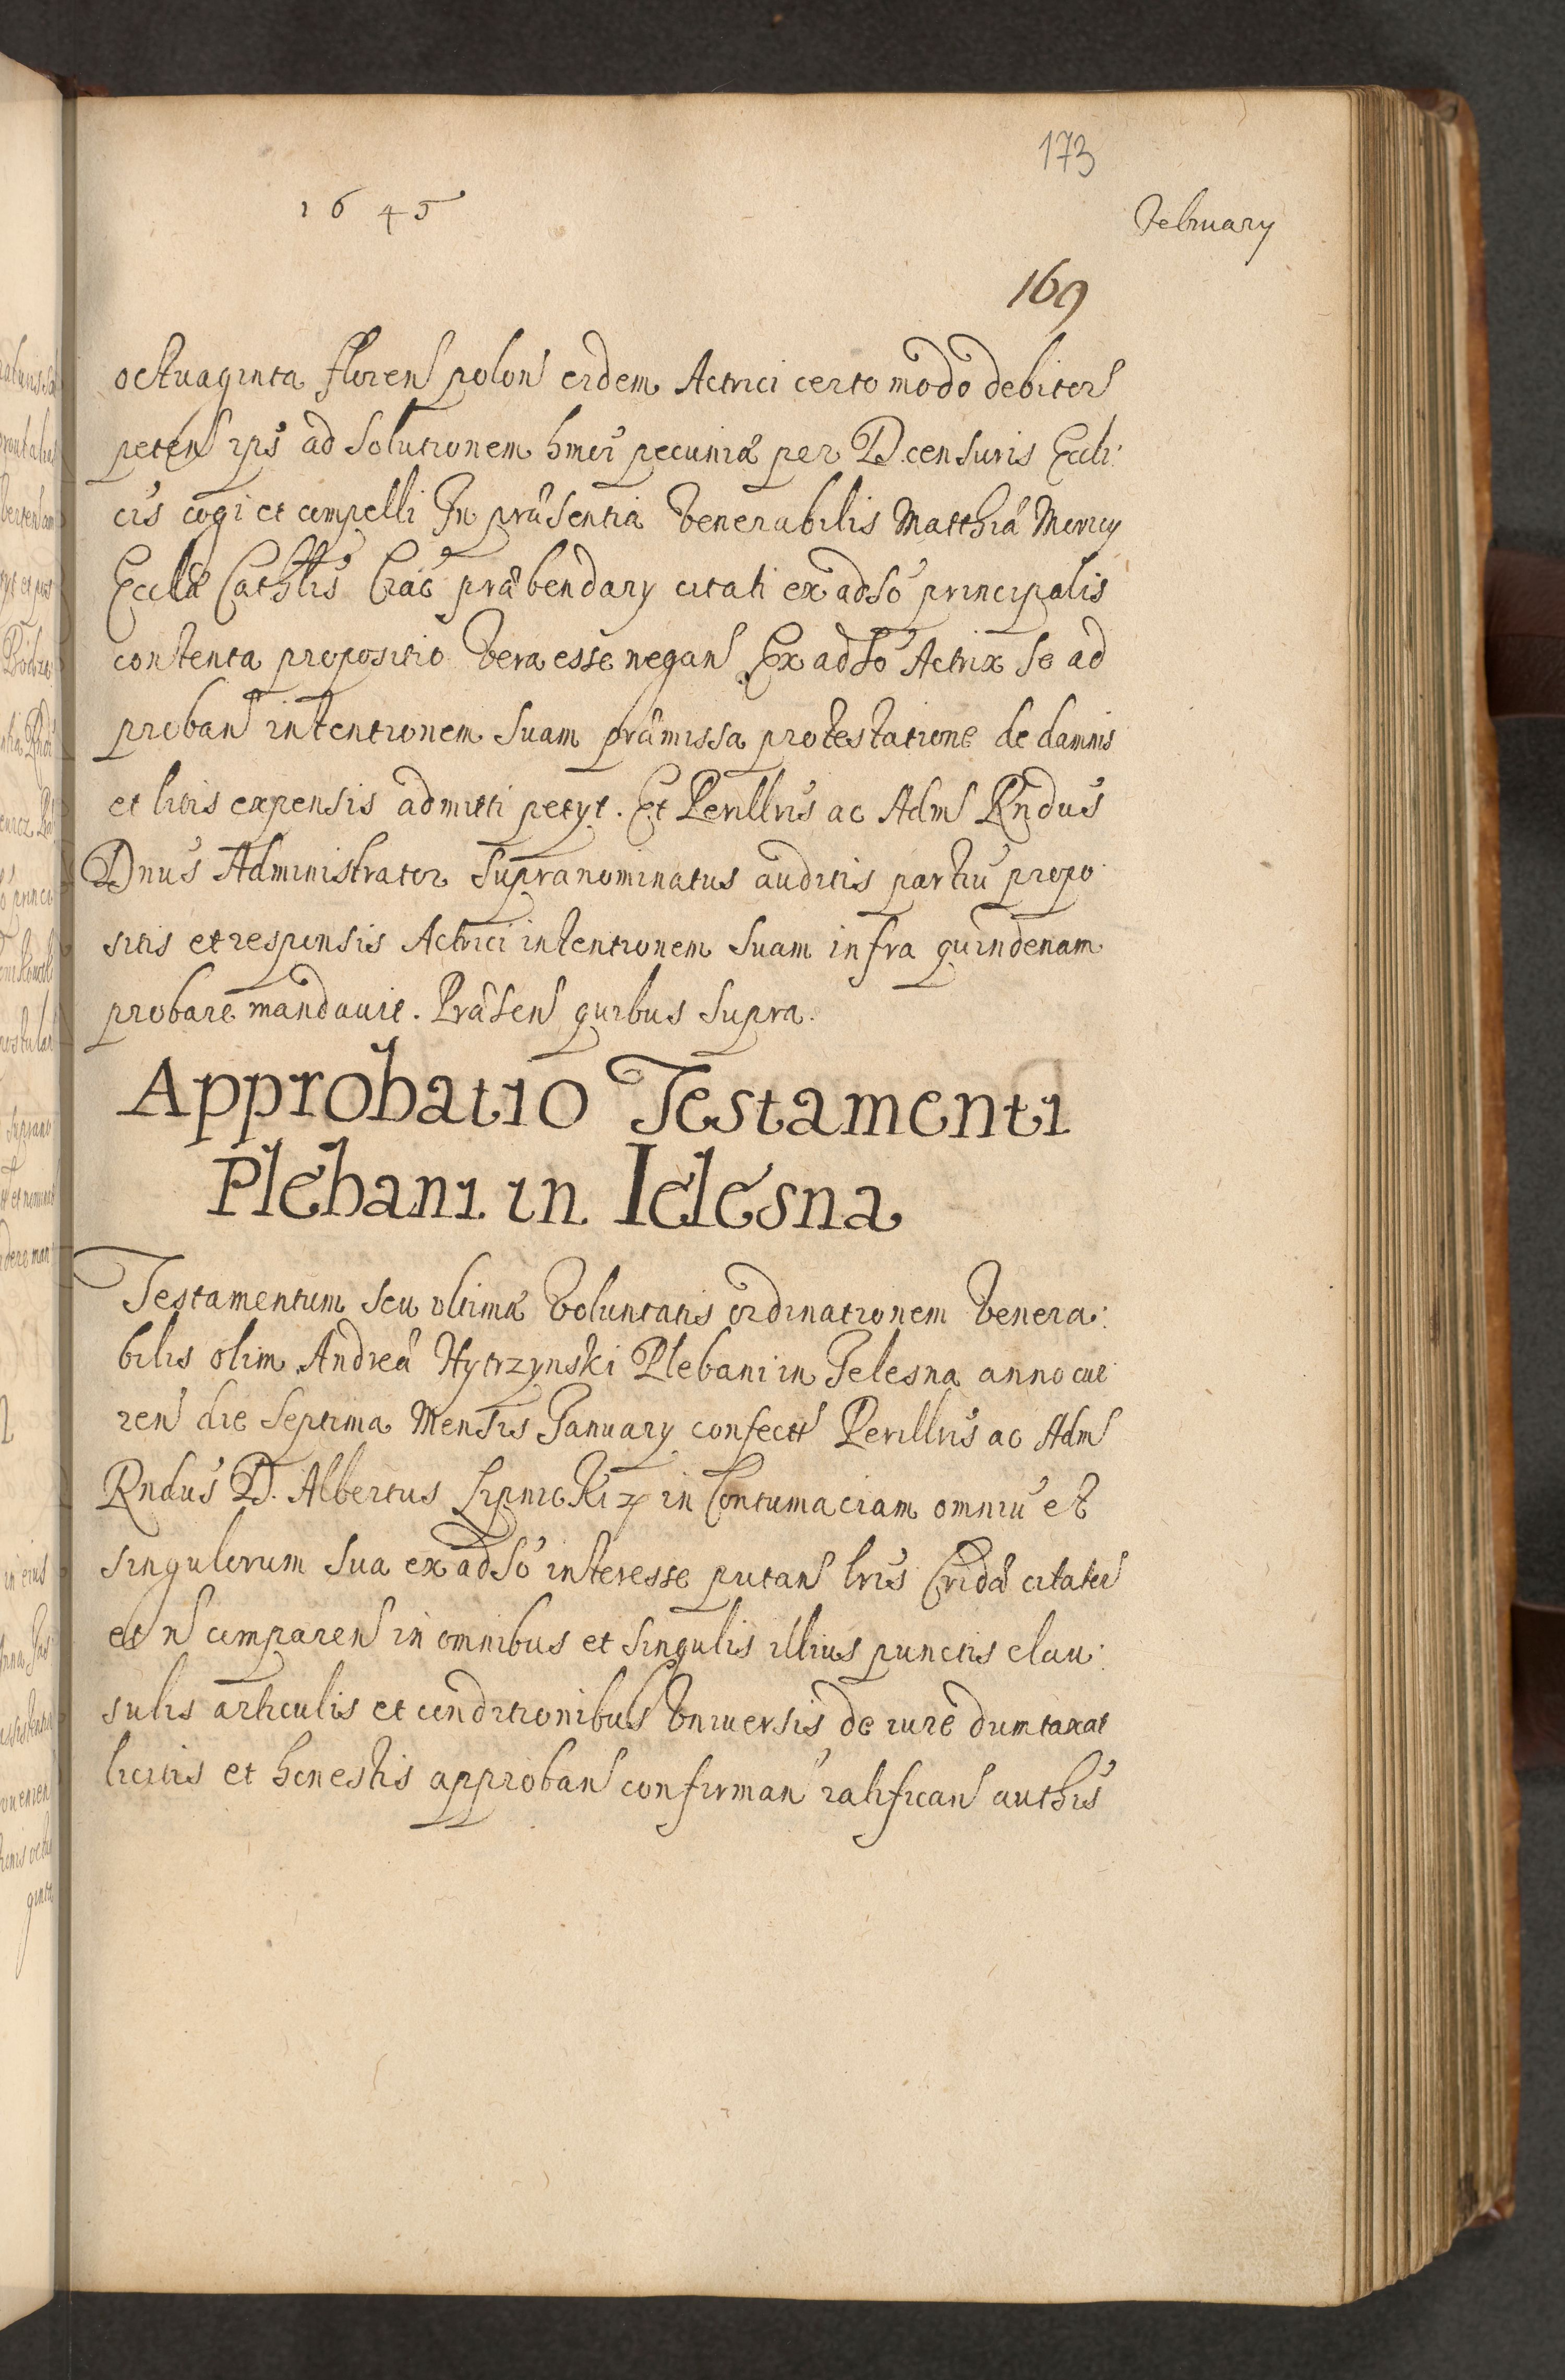 173
1645
February
169
octuaginta floren polon eidem Actrici certo modo debitor
peten ips ad solutionem hmoi pecuniæ per D. censuris Eccli:
cis cogi et compelli In præsentia Venerabilis Matthiæ
Ecclæ Cathlis Crac præbendary citati ex adso principalis
contenta propositio vera esse negan Ex adso Actrix se ad
proban intentionem suam præmissa protestatione de damnis
et litis expensis admitti petyt. Et Perillris ac Adm Rndus
Dnus Administrator supranominatus auditis partiu propo
sitis et responsis Actrici intentionem suam infra quindenam
probare mandavit. Præsen quibus supra.
Approbatio Testamenti
Plebani in Ielesna
Testamentum seu ultimæ Voluntatis ordinationem Venera:
bilis olim Andreæ Hytrzynski Plebani in Jelesna anno cur
ren die septima Mensis January confect Perillris ac Adm
Rndus D. Albertus Lipnicki in Contumaciam omniu et
singulorum sua ex adso interesse putan lris Cridæ citator
et n comparen in omnibus et singulis illius punctis clau:
sulis articulis et conditionibus Universis de iure dumtaxat
licitis et honestis approban confirman ratifican authis